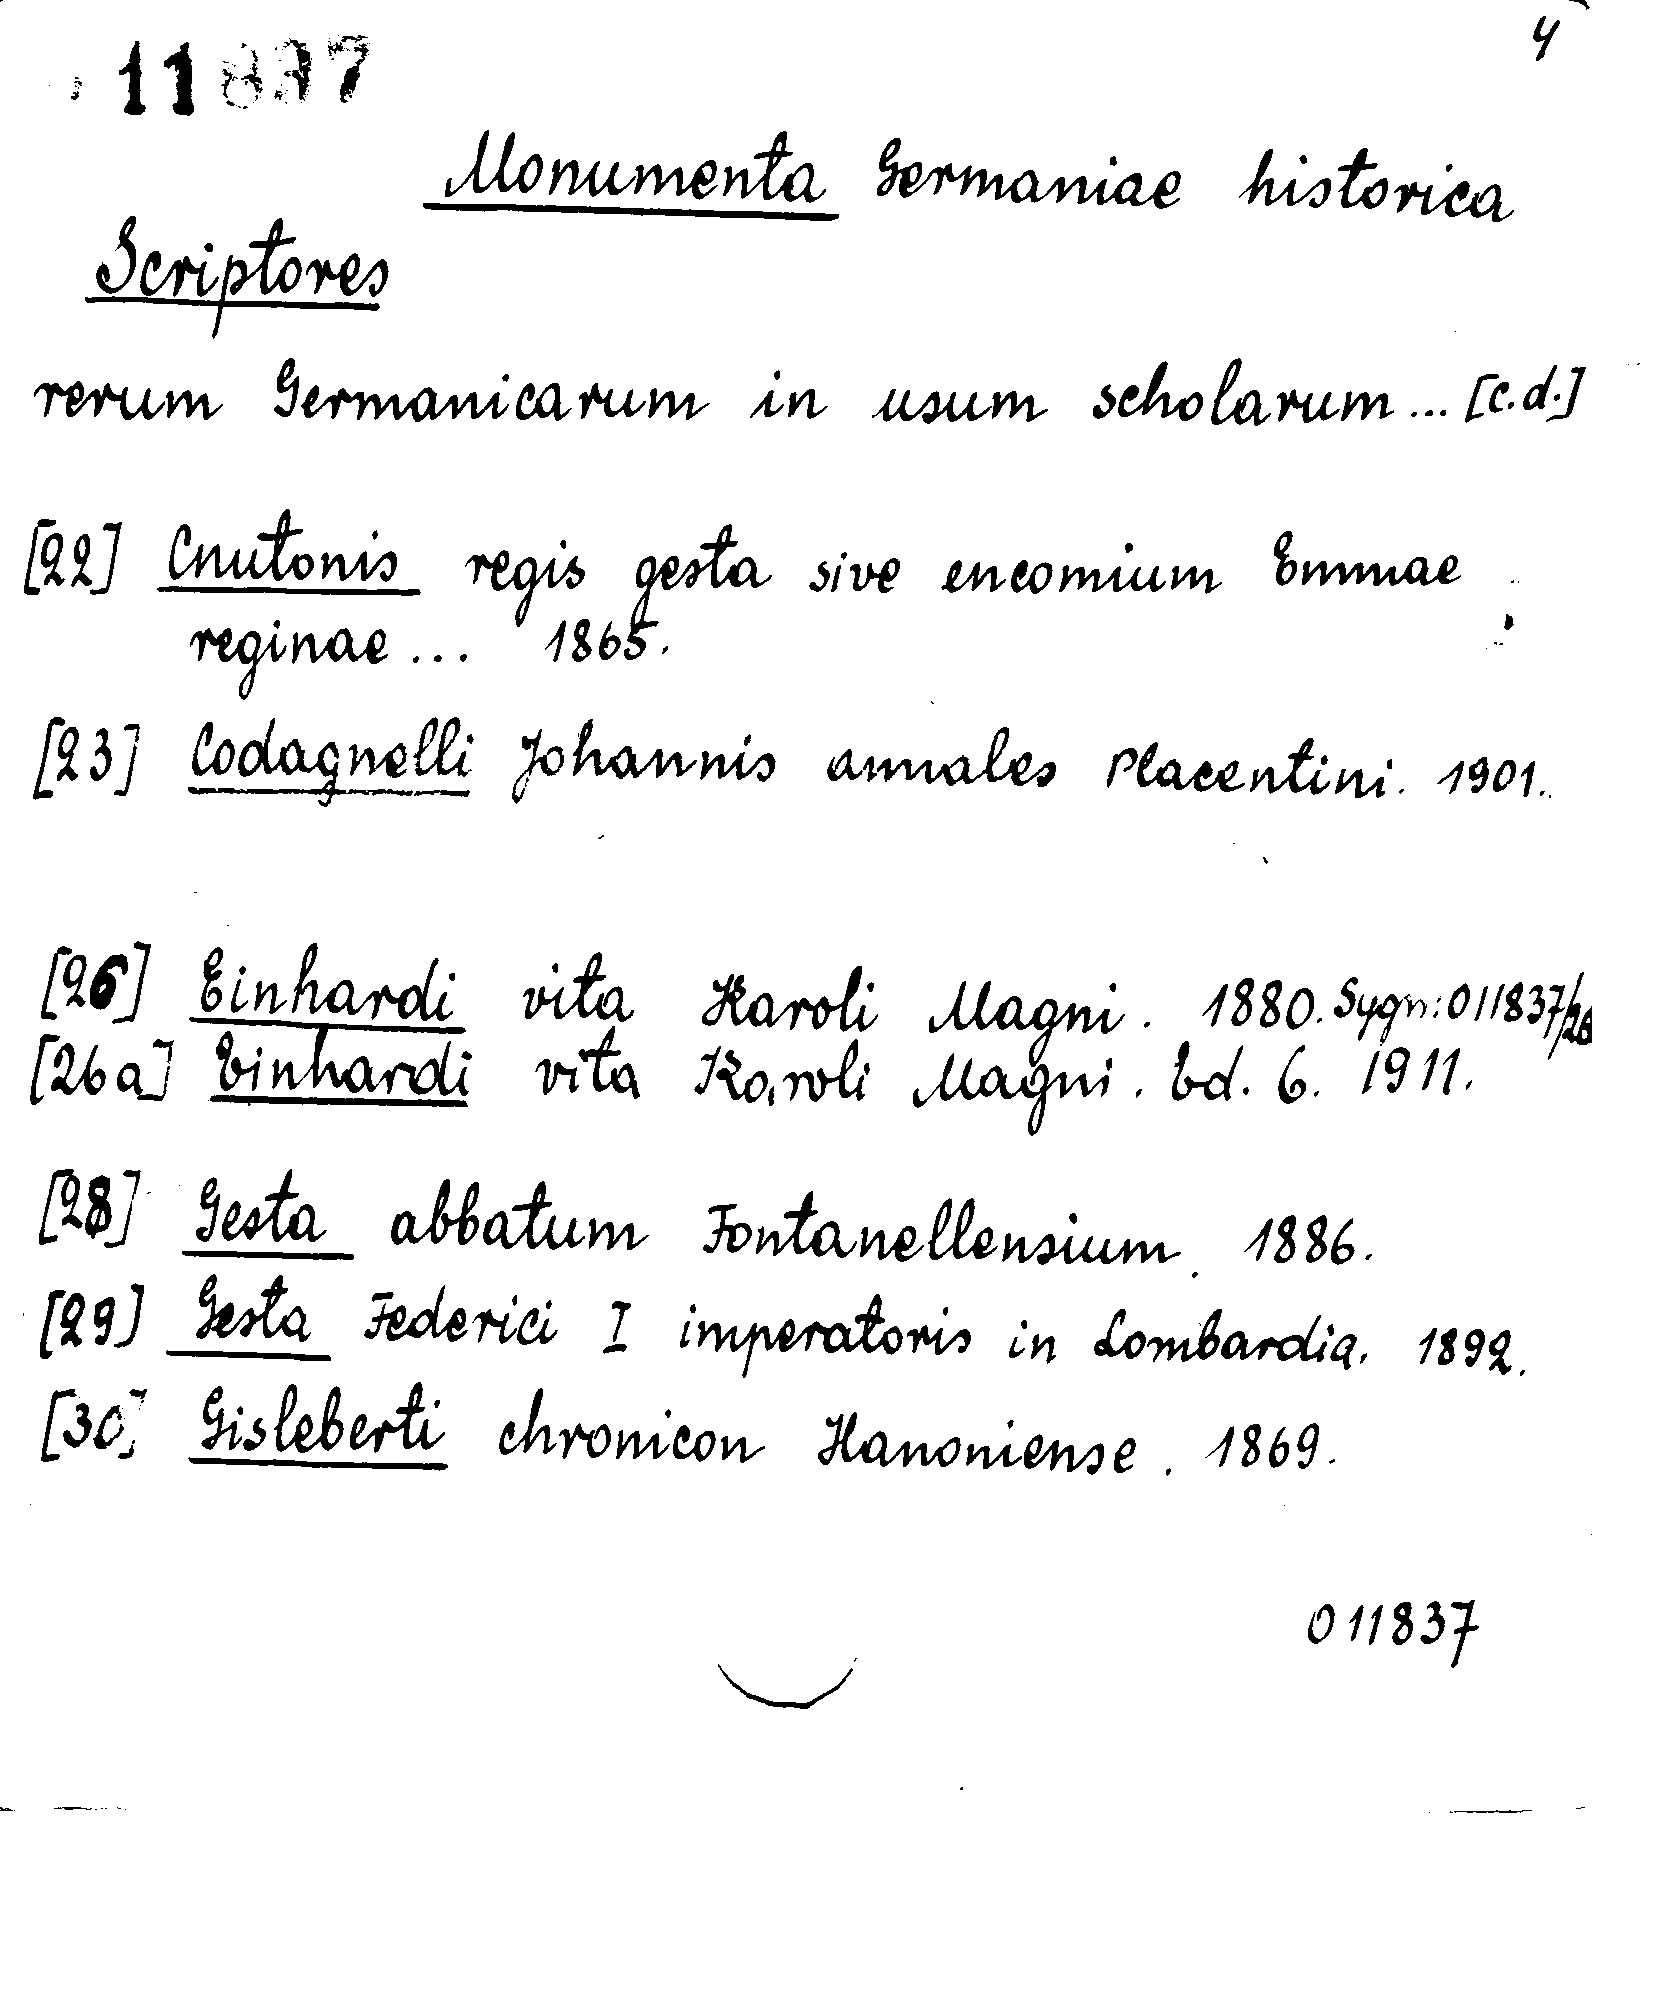 11837
4
Monumenta Germaniae historica
Scriptores
rerum Germanicarum in usum scholarum... [c.d.]
[22] Cnutonis regis gesta sive encomium Emmae
reginae... 1865.
[23] Codagnelli Johannis annales Placentini. 1901.
[26] Einhardi vita Karoli Magni. 1880. Sygn: 011837/26
[26a] Einhardi vita Karoli Magni. Ed. 6. 1911.
[28] Gesta abbatum Fontanellensium. 1886.
[29] Gesta Federici I imperatoris in Lombardia. 1892.
[30] Gisleberti chronicon Hanoniense. 1869.
011837